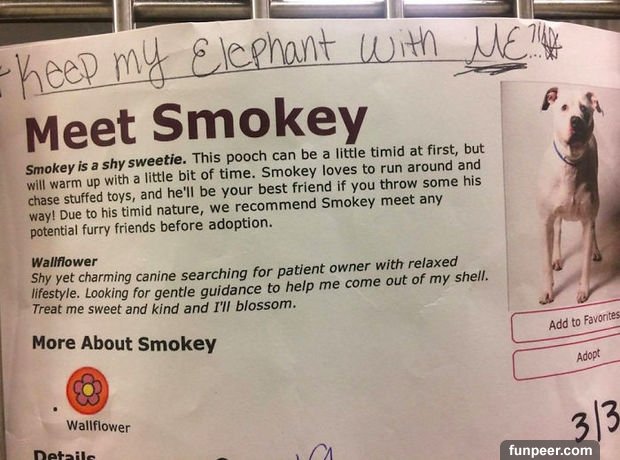 * Keep my Elephant with ME..!!
Meet Smokey
Smokey is a shy sweetie. This pooch can be a little timid at first, but
will warm up with a little bit of time. Smokey loves to run around and
chase stuffed toys, and he'll be your best friend if you throw some his
way! Due to his timid nature, we recommend Smokey meet any
potential furry friends before adoption.
Wallflower
Shy yet charming canine searching for patient owner with relaxed
lifestyle. Looking for gentle guidance to help me come out of my shell.
Treat me sweet and kind and I'll blossom.
Add to Favorites
Adopt
More About Smokey
Wallflower
3/3
Details
funpeer.com